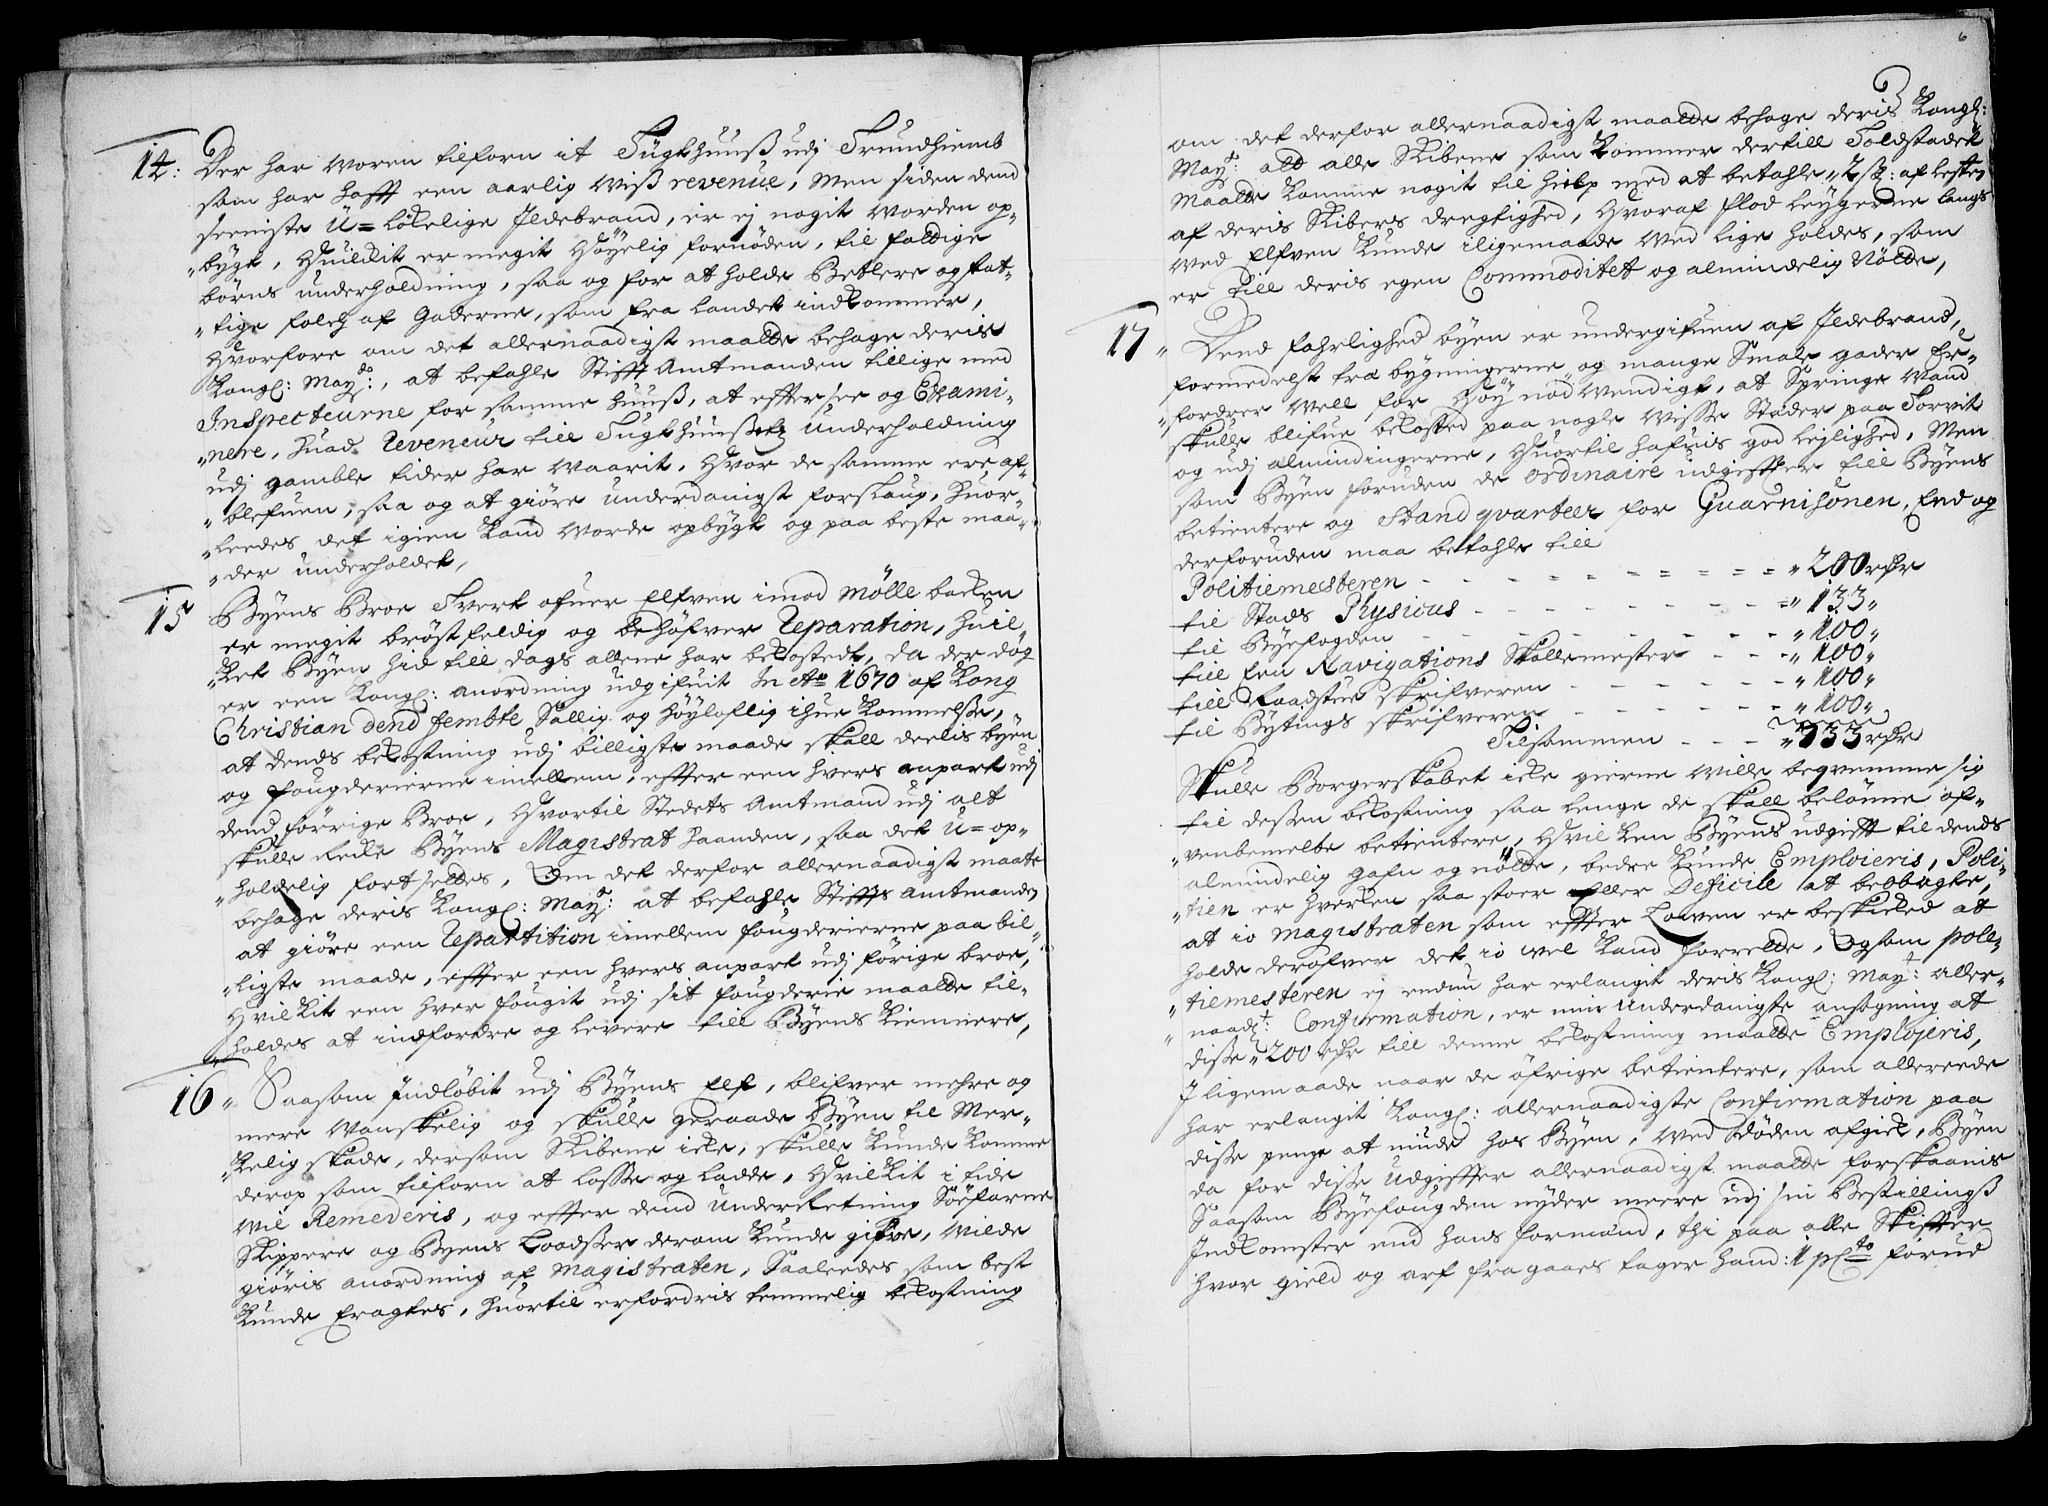 14: Der har woren tilforn it Tügthuuß udj Trundhiemb
som har hafft een aarlig wiß revenue, Men siden dend
seeniste U=lökelige Jldebrand, er ej nogit worden op-
bygt, Huilkit er megit Höyelig fornöden, til fattige
börns underholdning, saa og for at holde Betlere og fat-
tige folch af Gaderne, som fra landet indkommer,
Hvorfore om det allernaadigst maatte behage deris
Kongl: May:, at befahle Stifft Amtmanden tillige med
Inspecteurne for samme huuß, at effter see og Exami-
nere, huad Reveneur till Tugthuußets underholdning
udj gamble tider har waarit, Hvor de samme ere af-
blefuen, saa og at giöre underdanigst forslaug, huor-
leedes det igien kand worde opbygt og paa beste maa-
der underholdet,
15 Byens Broe Tvert ofuer Elfven imod Mölle backen
er megit bröstfeldig og behöfver Reparation, huil-
ket Byen hid till dags allene har bekostedt, da der dog
er een Kongl: anordning udgifuit In Ao 1670 af Kong
Christian dend fembte Sallig og höyloflig ihuekommelse,
at dends bekostning udj billigste maade skall deelis byen
og fougderierne imellem, effter een hvers anpart udj
dend förrige Broe, Hvortil Stedets Amtmand udj alt
skulle recke Byens Magistrat haanden, saa det U=op-
holdelig fortsettes, Om det derfor allernaadigst maate
behage deris Kongl: May: at befahle Stiffts Amtmanden
at giöre een Repartition imellem fougderierne paa bil-
ligste maade, effter een hvers anpart udj förige broe,
Hvilkit een hver fougit udj sit fougderie maatte til-
holdes at indfordre og levere till Byens Kiemnere,
16 Saasom Indlöbit udj Byens Elf, blifver mehre og
mere Vanskelig og skulle geraade Byen til Mer-
kelig skade, dersom Skibene icke, skulle kunde komme
derop som tilforn at losse og ladde, Hvilkit i tide
wil Remederis, og effter dend underretning Söefarne
Skippere og Byens Loodser derom kunde gifve, wilde
giöris anordning af Magistraten, Saaleedes som best
kunde Eragtes, huortil erfordris temmelig bekostning
6
om det derfor allernaadigst maatte behage deris Kongl:
May: att alle Skibene som kommer dertill Toldstadet
Maatte komme nogit til hielp med at betahle 2 sk: af lesten
af deris Skibers dregtighed, Hvoraf flod leygerne langs
wed Elfven kunde iligemaade wed lige holdes, som
er till deris egen Commoditet og almindelig Nötte,
17 Dend fahrlighed byen er undergifuen af Jldebrand,
formedelst tra bygningerne og mange Smale gader Er-
fordrer well for Höy nodwendigt, at Springe Wand
skulle blifue bekosted paa nogle wisse Stæder paa Torvit
og udj almindingerne, Huortil hafuis god lejlighed, Men
som Byen foruden de ordinaire udgiffter till Byens
betientere og Stand qvarteer for Guarnisonen, End og
derforuden maa betahle till
Politiemesteren 200 rdr
til Stads Physicus 133
til Byefogden 100
till Een Navigations Skollemester 100
till Raadstue skrifveren 100
til Bytings skrifveren 100
Tilsammen 733 rdr
Skulle Borgerskabet icke gierne wille beqvemme sig
til dessen bekostning saa lenge de skall belönne of-
venbemelte betientere, Hvilken Byens udgifft til dends
almindelig gafn og nötte, bedre kunde Emploieris, Poli-
tien er hverken saa stoer Eller Deficile at beobagte,
at io Magistraten som effter Lowen er beskicked at
holde deröfver det io wel kand forrette, Og som poli-
tiemesteren ej endnu har erlangit deris Kongl: May: aller-
naad: Confirmation, er min underdanigste ansögning at
disse 200 rdr till denne bekostning maatte Emplojeris,
Jligemaade naar de öfrige betientere, som allereede
har erlangit Kongl: allernaadigste Confirmation paa
disse penge at niude hos Byen, wed döden afgick, Byen
da for disse Udgiffter allernaadigst maatte forskaanis
Saasom Byefougden nyder meere udj sin Bestillings
Indkomster end hans formænd, thi paa alle Skiffter
hvor gield og arf fragaaes tager hand: 1 pCto forud